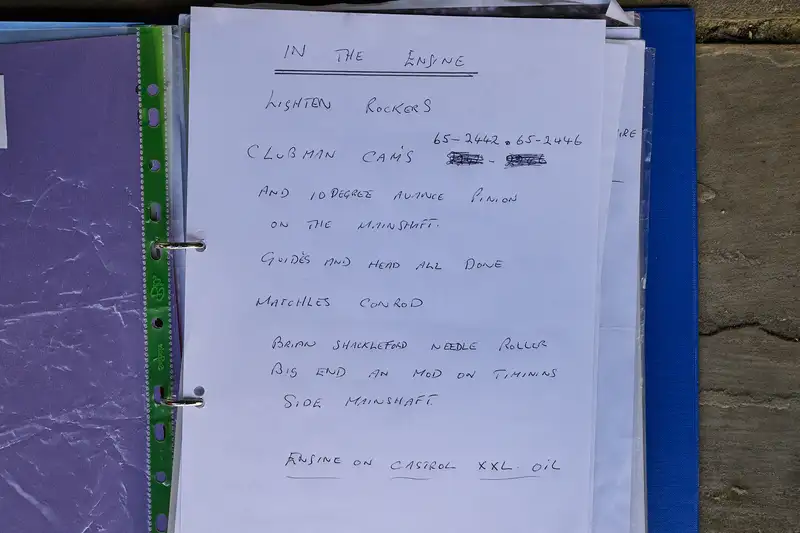 IN THE ENGINE
LIGHTEN ROCKERS
65-2442 . 65-2446
CLUBMAN CAM'S
AND 10 DEGREE AVANCE PINION
ON THE MAINSHAFT.
GUIDES AND HEAD ALL DONE
MATCHLES CONROD
BRIAN SHACKLEFORD NEEDLE ROLLER
BIG END AN MOD ON TIMININS
SIDE MAINSHAFT.
ENGINE ON CASTROL XXL. OIL